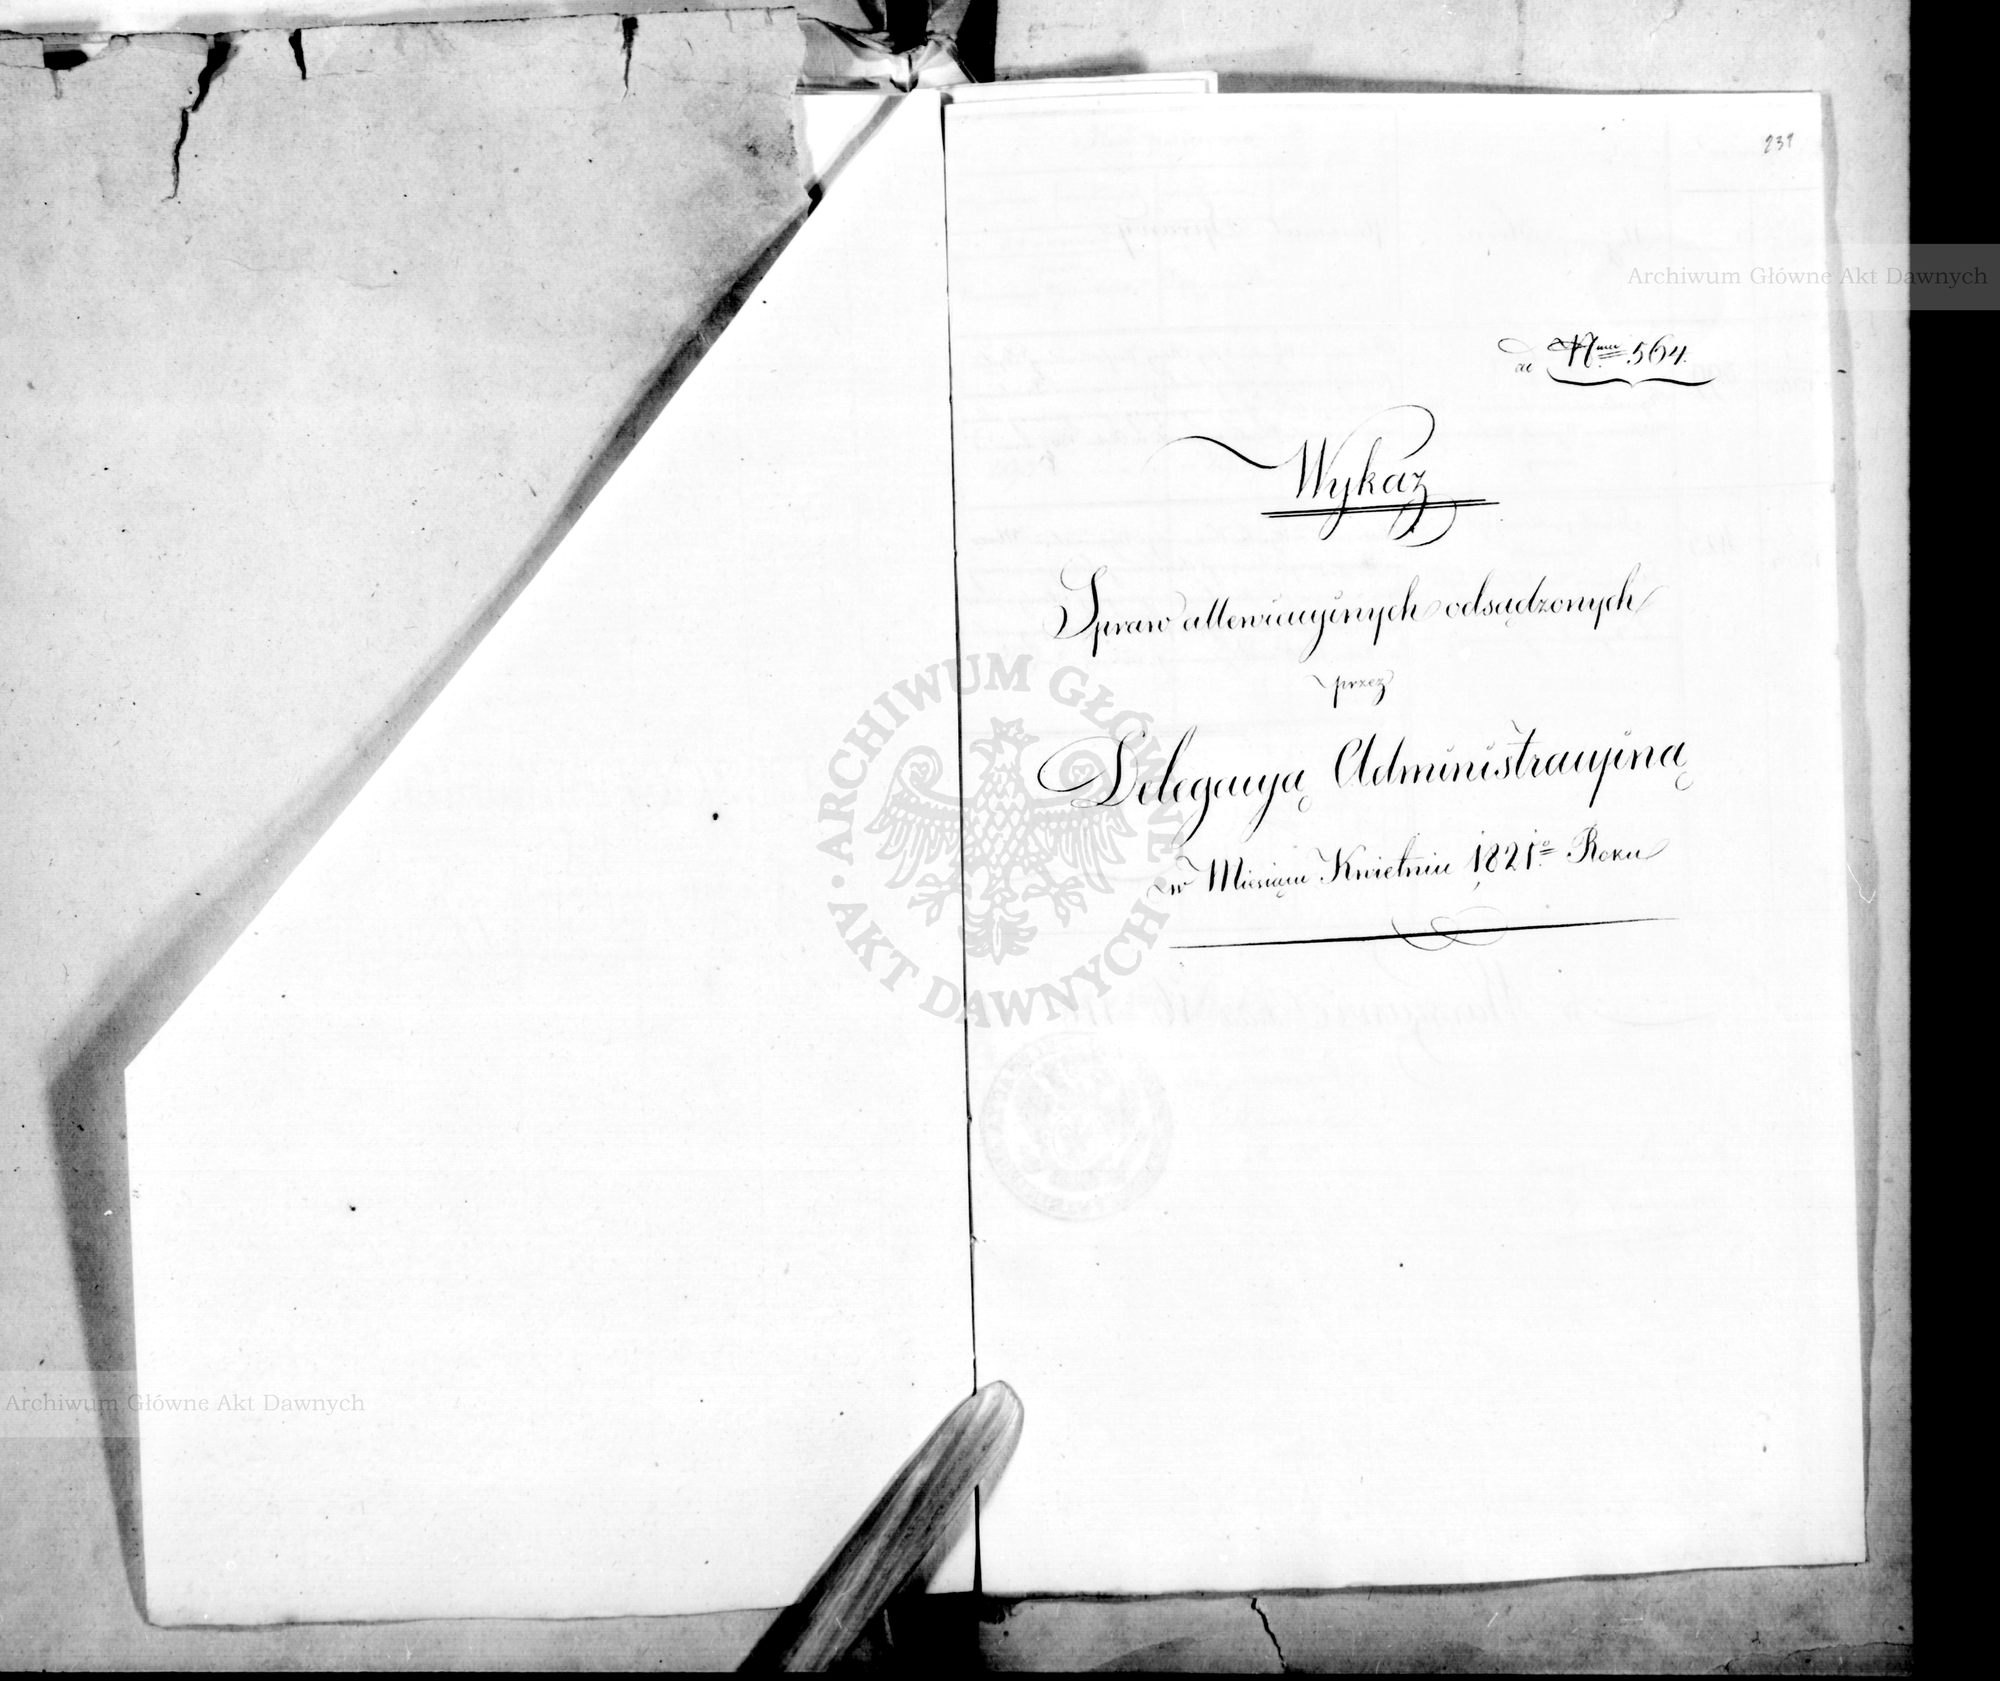 239
Archiwum Główne Akt Dawnych
do Nru 564.
Wykaz
Spraw attenuacyinych odsądzonych
przez
Delegacyą Administracyiną
w Miesiącu Kwietniu 1821o Roku
ARCHIWUM GŁÓWNE
AKT DAWNYCH
Archiwum Główne Akt Dawnych